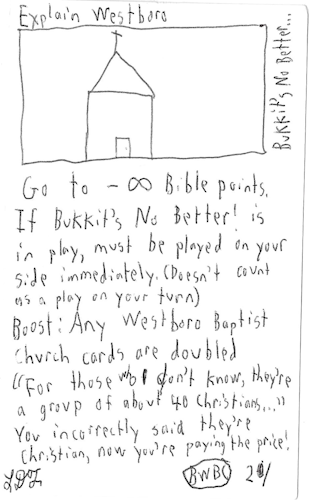 Explain Westboro
Bukkit's No Better...
Go to -∞ Bible points.
If Bukkit's No Better! is
in play, must be played on your
side immediately. (Doesn't count
as a play on your turn)
Boost: Any Westboro Baptist
Church cards are doubled
"For those who don't know, they're
a group of about 40 Christians..."
You incorrectly said they're
Christian, now you're paying the price!
BWBC